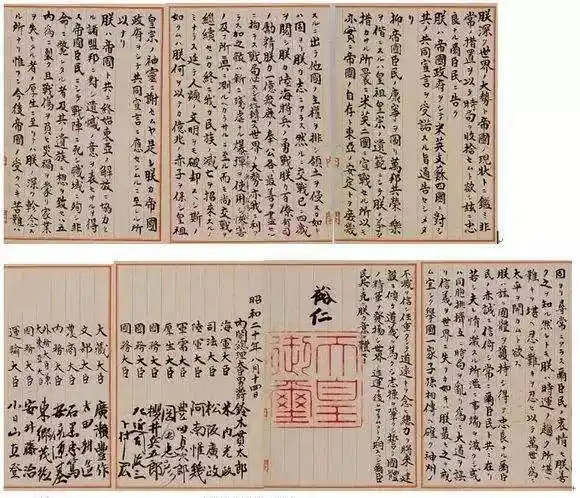 朕深ク世界ノ大勢ト帝國ノ現狀トニ鑑ミ非
常ノ措置ヲ以テ時局ヲ收拾セムト欲シ茲ニ忠
良ナル爾臣民ニ告ク
朕ハ帝國政府ヲシテ米英支蘇四國ニ對シ
其ノ共同宣言ヲ受諾スル旨通告セシメタ
リ
抑〻帝國臣民ノ康寧ヲ圖リ萬邦共榮ノ樂
ヲ偕ニスルハ皇祖皇宗ノ遺範ニシテ朕ノ拳々
措カサル所曩ニ米英二國ニ宣戰セル所以モ
亦實ニ帝國ノ自存ト東亞ノ安定トヲ庶幾
スルニ出テ他國ノ主權ヲ排シ領土ヲ侵スカ如キ
ハ固ヨリ朕カ志ニアラス然ルニ交戰已ニ四歲
ヲ閱シ朕カ陸海將兵ノ勇戰朕カ百僚有司
ノ勵精朕カ一億衆庶ノ奉公各〻最善ヲ盡セ
ルニ拘ラス戰局必スシモ好轉セス世界ノ大勢亦我ニ利
アラス加之敵ハ新ニ殘虐ナル爆彈ヲ使用シテ頻ニ無辜ヲ殺傷シ慘害
ノ及フ所眞ニ測ルヘカラサルニ至ル而モ尚交戰ヲ
繼續セムカ終ニ我カ民族ノ滅亡ヲ招來スルノ
ミナラス延テ人類ノ文明ヲモ破却スヘシ斯ノ
如クムハ朕何ヲ以テカ億兆ノ赤子ヲ保シ皇祖
皇宗ノ神靈ニ謝セムヤ是レ朕カ帝國
政府ヲシテ共同宣言ニ應セシムルニ至レル所
以ナリ
朕ハ帝國ト共ニ終始東亞ノ解放ニ協力セ
ル諸盟邦ニ對シ遺憾ノ意ヲ表セサルヲ得
ス帝國臣民ニシテ戰陣ニ死シ職域ニ殉シ非
命ニ斃レタル者及其ノ遺族ニ想ヲ致セハ五
內爲ニ裂ク且戰傷ヲ負ヒ災禍ヲ蒙リ家業
ヲ失ヒタル者ノ厚生ニ至リテハ朕ノ深ク軫念ス
ル所ナリ惟フニ今後帝國ノ受クヘキ苦難ハ
固ヨリ尋常ニアラス爾臣民ノ衷情モ朕善
ク之ヲ知ル然レトモ朕ハ時運ノ趨ク所堪ヘ
難キヲ堪ヘ忍ヒ難キヲ忍ヒ以テ萬世ノ爲ニ
太平ヲ開カムト欲ス
朕ハ茲ニ國體ヲ護持シ得テ忠良ナル爾臣
民ノ赤誠ニ信倚シ常ニ爾臣民ト共ニ在リ
若シ夫レ情ノ激スル所濫ニ事端ヲ滋クシ或
ハ同胞排擠互ニ時局ヲ亂リ爲ニ大道ヲ誤リ
信義ヲ世界ニ失フカ如キハ朕最モ之ヲ戒
ム宜シク擧國一家子孫相傳ヘ確ク神州ノ
不滅ヲ信シ任重クシテ道遠キヲ念ヒ總力ヲ將來ノ建
設ニ傾ケ道義ヲ篤クシ志操ヲ鞏クシ誓テ國體
ノ精華ヲ發揚シ世界ノ進運ニ後レサラムコトヲ期スヘシ爾臣
民其レ克ク朕カ意ヲ體セヨ
裕仁
天皇
御璽
昭和二十年八月十四日
內閣總理大臣男爵 鈴木貫太郎
海軍大臣 米內光政
司法大臣 松阪廣政
陸軍大臣 阿南惟幾
軍需大臣 豐田貞次郎
厚生大臣 岡田忠彥
國務大臣 櫻井兵五郎
國務大臣 左近司政三
國務大臣 下村宏
大藏大臣 廣瀨豐作
文部大臣 太田耕造
農商大臣 石黑忠篤
內務大臣 安倍源基
外務大臣兼大東亞大臣 東鄕茂德
國務大臣 安井藤治
運輸大臣 小日山直登